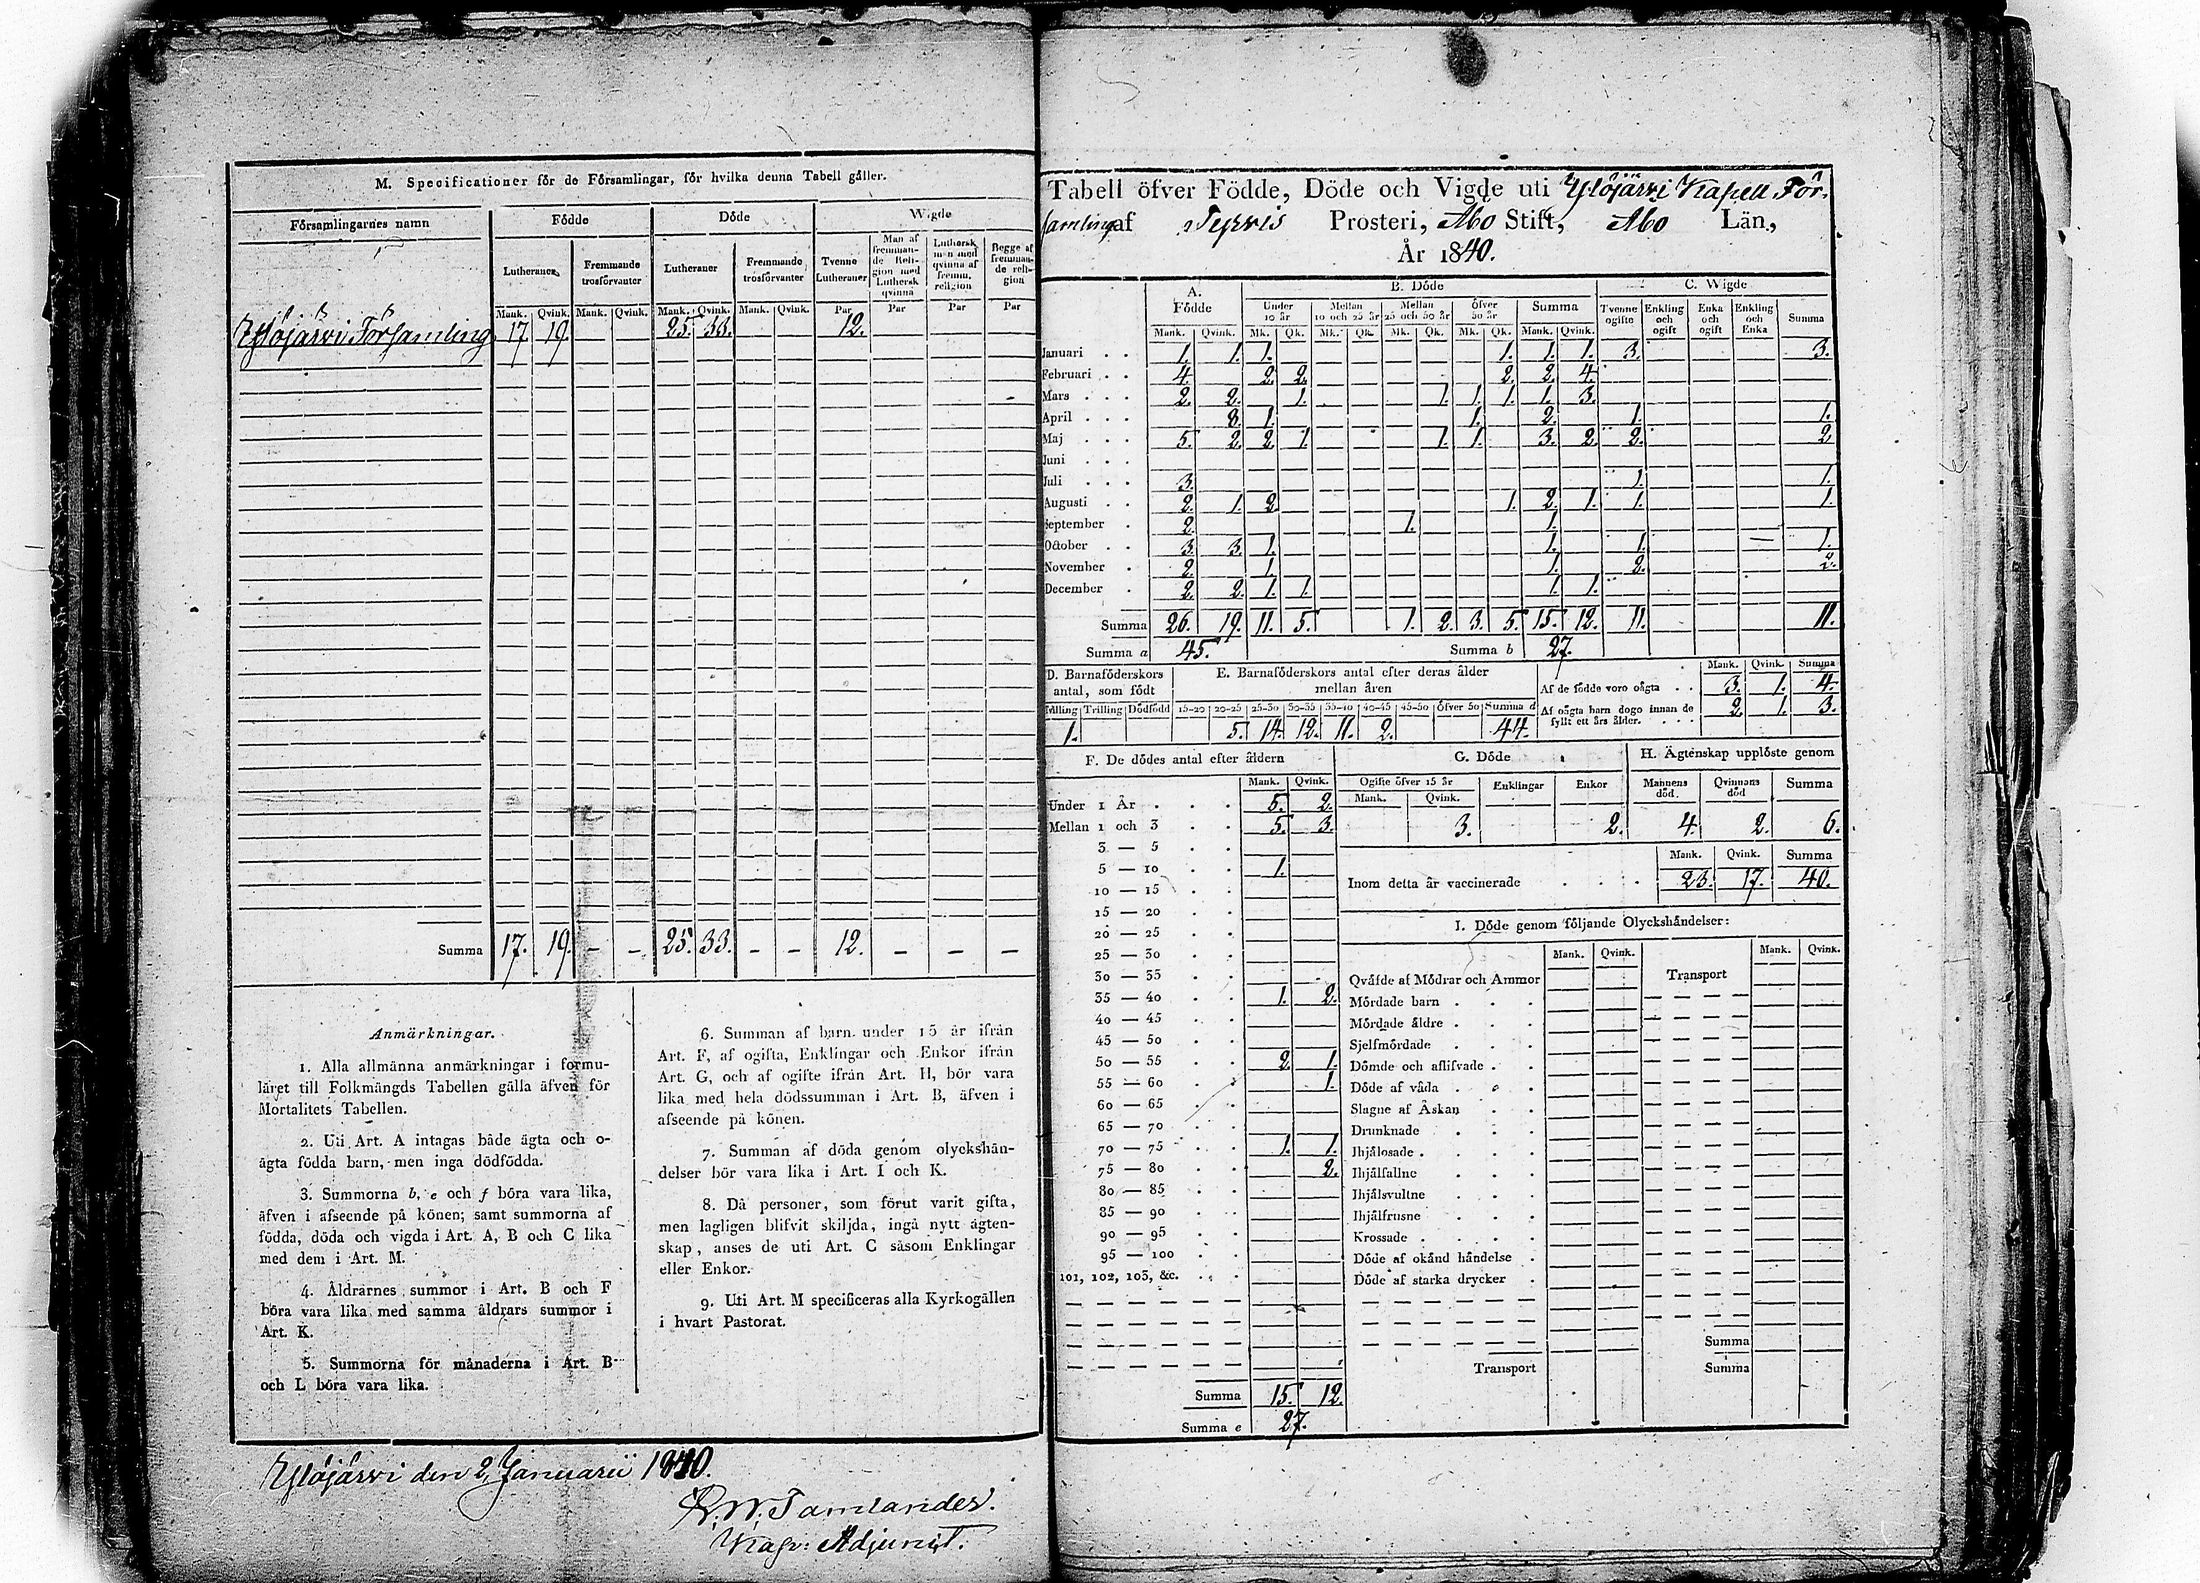 M. Specificationer för de Församlingar, för hvilka denna Tabell gäller.
Församlingarnes namn | Födde | Döde | Wigde
Lutheraner | Fremmande trosförvanter | Lutheraner | Fremmande trosförvanter | Tvenne Lutheraner | Man af fremmande Religion med Luthersk qvinna | Luthersk man med qvinna af fremm. religion | Begge af fremmande religion
Mank. | Qvink. | Mank. | Qvink. | Mank. | Qvink. | Mank. | Qvink. | Par | Par | Par | Par
Ylöjärvi Församling | 17. | 19. | 25. | 33. | 12.
Summa | 17. | 19. | – | – | 25. | 33. | – | – | 12. | – | – | –
Anmärkningar.
1. Alla allmänna anmärkningar i formu-
läret till Folkmängds Tabellen gälla äfven för
Mortalitets Tabellen.
2. Uti Art. A intagas både ägta och o-
ägta födda barn, men inga dödfödda.
3. Summorna b, e och f böra vara lika,
äfven i afseende på könen; samt summorna af
födda, döda och vigda i Art. A, B och C lika
med dem i Art. M.
4. Åldrarnes summor i Art. B och F
böra vara lika med samma åldrars summor i
Art. K.
5. Summorna för månaderna i Art. B
och L böra vara lika.
6. Summan af barn under 15 år ifrån
Art. F, af ogifta, Enklingar och Enkor ifrån
Art. G, och af ogifte ifrån Art. H, bör vara
lika med hela dödssumman i Art. B, äfven i
afseende på könen.
7. Summan af döda genom olyckshän-
delser bör vara lika i Art. I och K.
8. Då personer, som förut varit gifta,
men lagligen blifvit skiljda, ingå nytt ägten-
skap, anses de uti Art. C såsom Enklingar
eller Enkor.
9. Uti Art. M specificeras alla Kyrkogällen
i hvart Pastorat.
Ylöjärvi den 2. Januarii 1840.
Kap: Adjunct.
Tabell öfver Födde, Döde och Vigde uti Ylöjärvi Kapell För-
samling af Prosteri, Abo Stift, Abo Län,
År 1840.
A. Födde | B. Döde | C. Wigde
Under 10 år | Mellan 10 och 25 år | Mellan 25 och 50 år | Öfver 50 år | Summa | Tvenne ogifte | Enkling och ogift | Enka och ogift | Enkling och Enka | Summa
Mank. | Qvink. | Mk. | Qk. | Mk. | Qk. | Mk. | Qk. | Mk. | Qk. | Mank. | Qvink.
Januari | 1. | 1. | 1. | 1. | 1. | 1. | 3. | 3.
Februari | 4. | 2. | 2. | 2. | 2. | 4.
Mars | 2. | 2. | 1. | 1. | 1. | 1. | 1. | 3.
April | 8. | 1. | 1. | 2. | 1. | 1.
Maj | 5. | 2. | 2. | 1. | 1. | 1. | 3. | 2. | 2. | 2.
Juni
Juli | 3. | 1. | 1.
Augusti | 2. | 1. | 2. | 1. | 2. | 1. | 1. | 1.
September | 2. | 1. | 1.
October | 3. | 3. | 1. | 1. | 1. | 1.
November | 2. | 1. | 1. | 2. | 2.
December | 2. | 2. | 1. | 1. | 1. | 1.
Summa | 26. | 19. | 11. | 5. | 1. | 2. | 3. | 5. | 15. | 12. | 11. | 11.
Summa a | 45. | Summa b | 27.
D. Barnaföderskors antal, som födt
Tvilling | Trilling | Dödfödd
1.
E. Barnaföderskors antal efter deras ålder mellan åren
15–20 | 20–25 | 25–30 | 30–35 | 35–40 | 40–45 | 45–50 | öfver 50 | Summa d
5. | 14. | 12. | 11. | 2. | 44.
Mank. | Qvink. | Summa
Af de födde voro oägta | 3. | 1. | 4.
Af oägta barn dogo innan de fyllt ett års ålder. | 2. | 1. | 3.
F. De dödes antal efter åldern
Mank. | Qvink.
Under 1 År | 5. | 2.
Mellan 1 och 3 | 5. | 3.
3 — 5
5 — 10 | 1.
10 — 15
15 — 20
20 — 25
25 — 30
30 — 35
35 — 40 | 1. | 2.
40 — 45
45 — 50
50 — 55 | 2. | 1.
55 — 60 | 1.
60 — 65
65 — 70
70 — 75 | 1. | 1.
75 — 80 | 2.
80 — 85
85 — 90
90 — 95
95 — 100
101, 102, 103, &c.
Summa | 15. | 12.
Summa e | 27.
G. Döde
Ogifte öfver 15 år | Enklingar | Enkor
Mank. | Qvink.
3. | 2.
H. Ägtenskap upplöste genom
Mannens död. | Qvinnans död | Summa
4. | 2. | 6.
Mank. | Qvink. | Summa
Inom detta år vaccinerade | 23. | 17. | 40.
I. Döde genom följande Olyckshändelser:
Mank. | Qvink. | Mank. | Qvink.
Qväfde af Mödrar och Ammor | Transport
Mördade barn
Mördade äldre
Sjelfmördade
Dömde och aflifvade
Döde af våda
Slagne af Åskan
Drunknade
Ihjälosade
Ihjälfallne
Ihjälsvultne
Ihjälfrusne
Krossade
Döde af okänd händelse
Döde af starka drycker
Summa
Transport | Summa